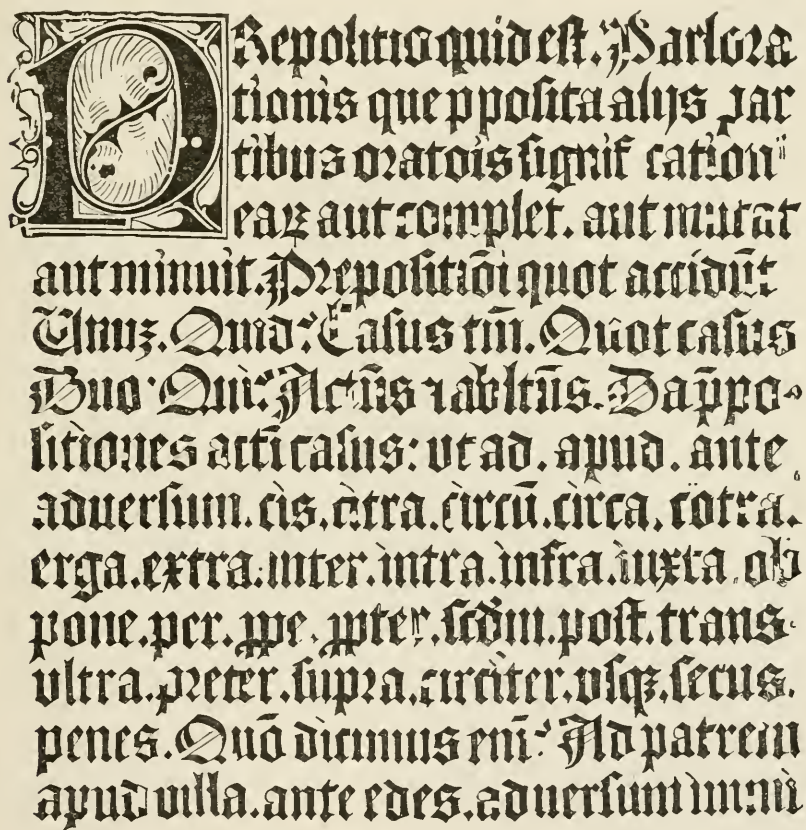 PRepositio quid est. Pars ora
tionis que pposita alijs par
tibus oratiois significationē
earꝫ aut complet. aut mutat
aut minuit. Prepositiōi quot accidūt
Unuꝫ. Quid? Casus tm̄. Quot casus
Duo. Qui? Actūs ⁊ abltūs. Da p̄po-
sitiones acti casus: vt ad. apud. ante
aduersum. cis. citra. circū. circa. cōtra.
erga. extra. inter. intra. infra. iuxta. ob
pone. per. ꝓpe. ꝓpter. scdm̄. post. trans.
vltra. preter. supra. circiter. vsqꝫ. secus.
penes. Quō dicimus eni? Ad patrem
apud villa. ante edes. aduersum